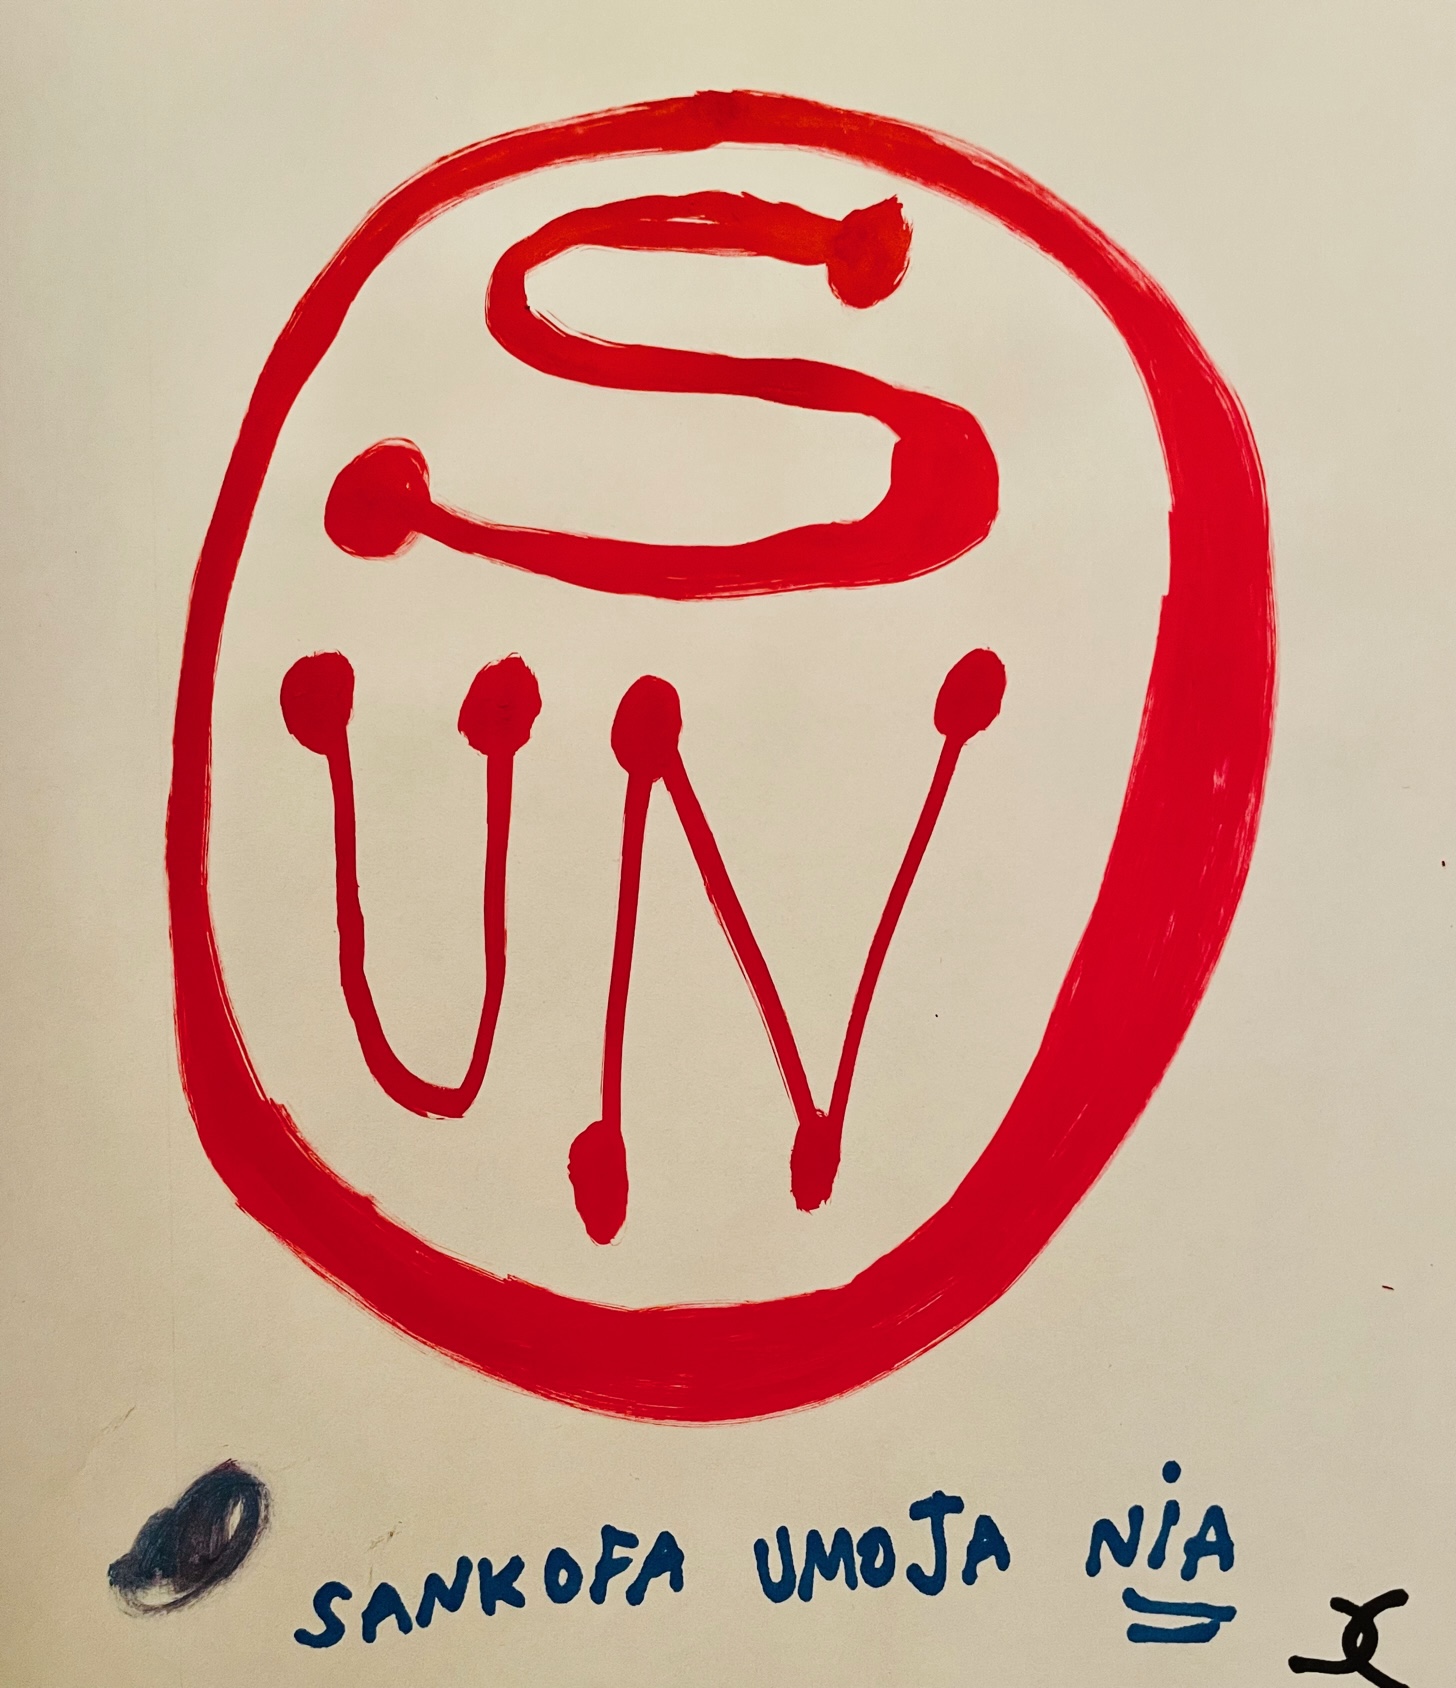 S
UN
SANKOFA UMOJA NiA